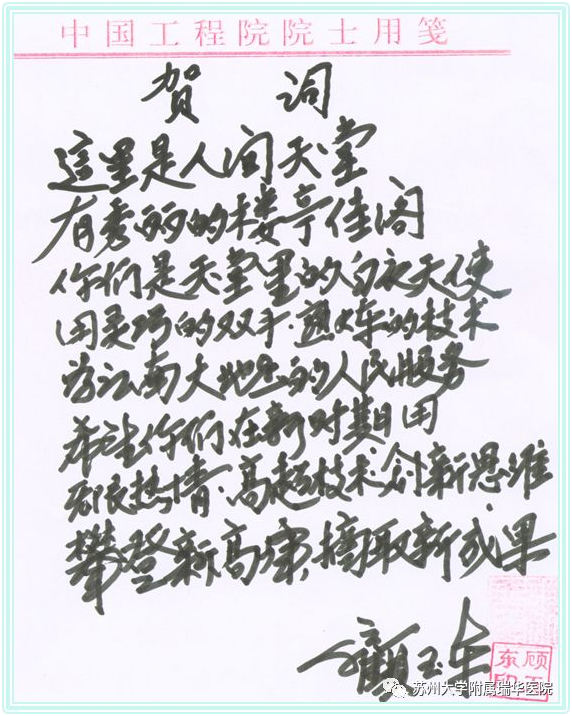 中国工程院院士用笺
贺 词
這里是人间天堂
有秀丽的楼亭佳阁
你们是天堂里的白衣天使
用灵巧的双手·熟练的技术
为江南大地上的人民服务
希望你们在新时期用
热情·高超技术创新思维
攀登新高峰,摘取新成果
顾玉东
顾玉东印
苏州大学附属瑞华医院